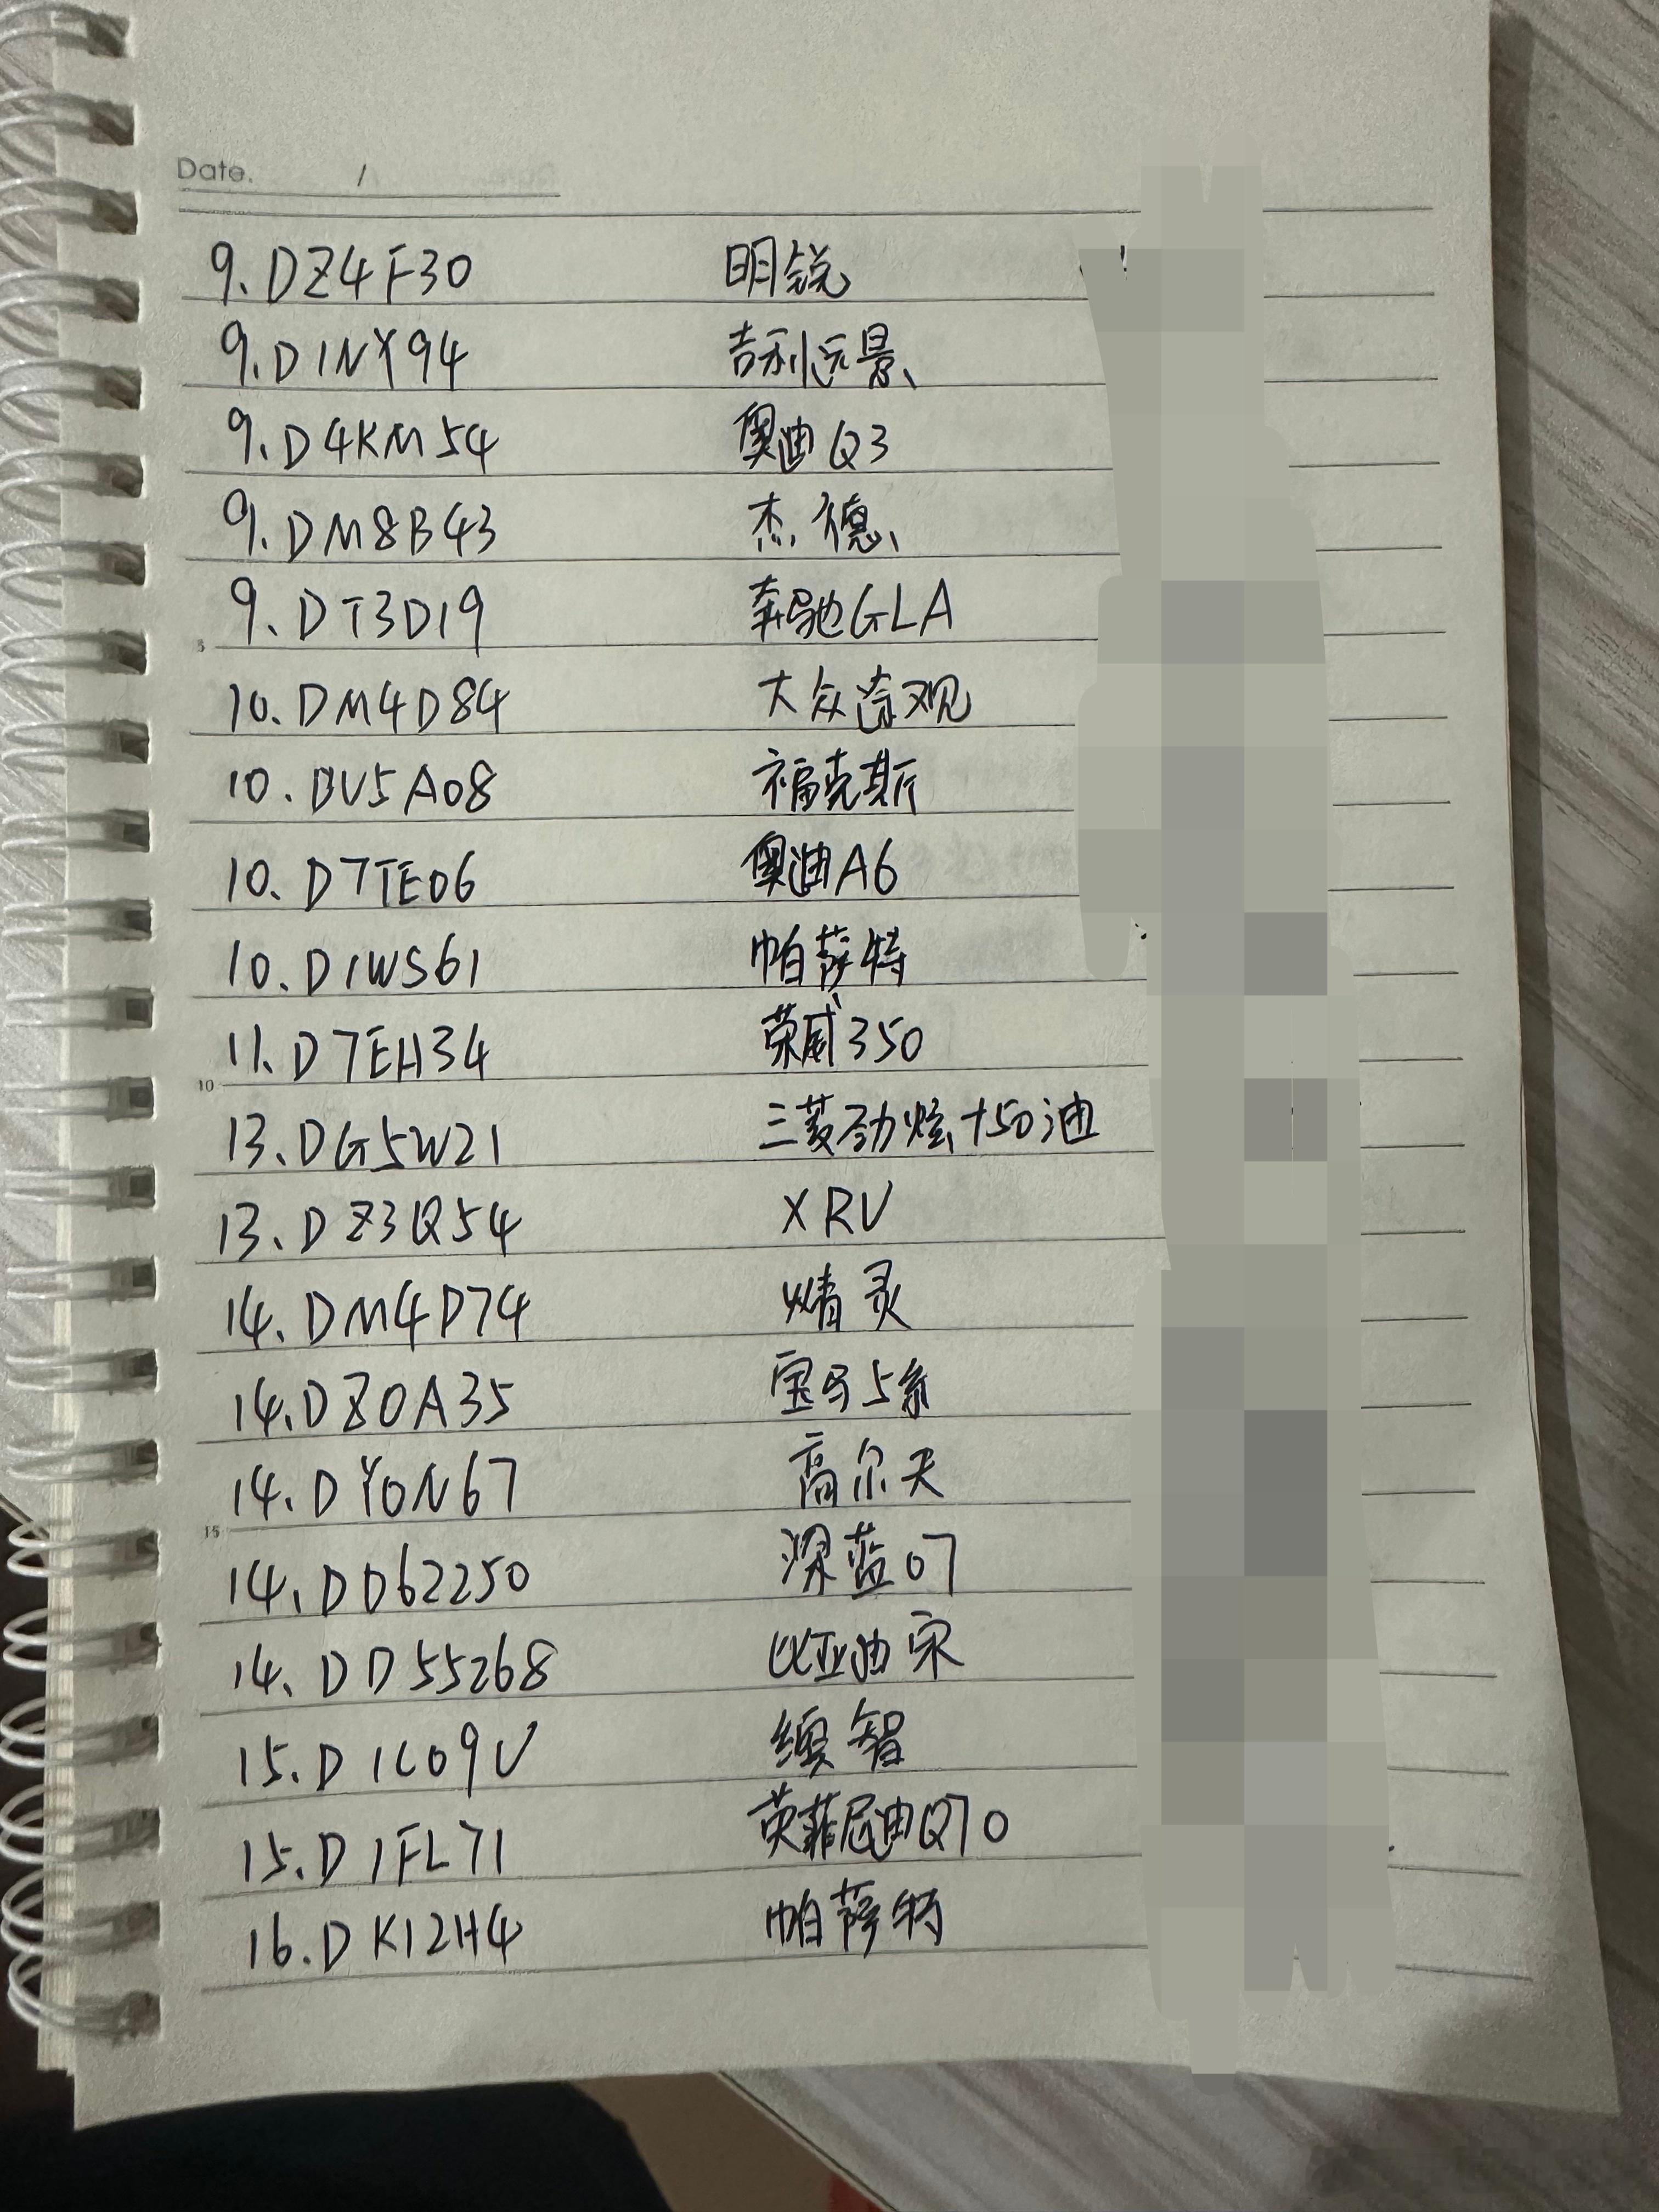 Date. /
9. DZ4F30 明锐
9. D1NY94 吉利远景
9. D4KM54 奥迪Q3
9. DM8B43 杰德
9. DT3D19 奔驰GLA
5
10. DM4D84 大众途观
10. DV5A08 福克斯
10. D7TE06 奥迪A6
10. D1WS61 帕萨特
11. D7EH34 荣威350
10
13. DG5W21 三菱劲炫+50油
13. DZ3Q54 XRV
14. DM4D74 精灵
14. DZ0A35 宝马5系
14. DY0N67 高尔夫
15
14. DD62250 深蓝07
14. DD55268 比亚迪宋
15. D1C09V 缤智
15. D1FL71 英菲尼迪Q70
16. DK12H4 帕萨特